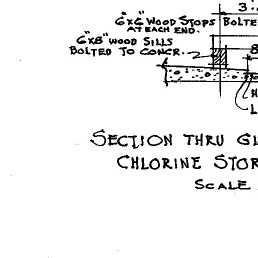 3'
6"x6" WOOD STOPS BOLTE
AT EACH END.
6"x8" WOOD SILLS
BOLTED TO CONCR. 8
H
L
SECTION THRU
CHLORINE STOR
SCALE